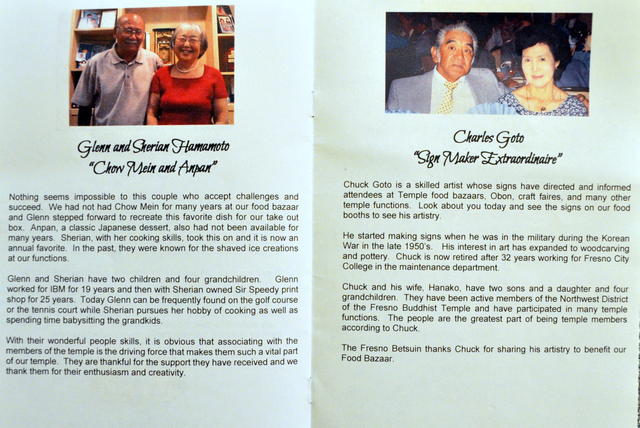 Glenn and Sherian Hamamoto
"Chow Mein and Anpan"
Nothing seems impossible to this couple who accept challenges and
succeed. We had not had Chow Mein for many years at our food bazaar
and Glenn stepped forward to recreate this favorite dish for our take out
box. Anpan, a classic Japanese dessert, also had not been available for
many years. Sherian, with her cooking skills, took this on and it is now an
annual favorite. In the past, they were known for the shaved ice creations
at our functions.
Glenn and Sherian have two children and four grandchildren. Glenn
worked for IBM for 19 years and then with Sherian owned Sir Speedy print
shop for 25 years. Today Glenn can be frequently found on the golf course
or the tennis court while Sherian pursues her hobby of cooking as well as
spending time babysitting the grandkids.
With their wonderful people skills, it is obvious that associating with the
members of the temple is the driving force that makes them such a vital part
of our temple. They are thankful for the support they have received and we
thank them for their enthusiasm and creativity.
Charles Goto
"Sign Maker Extraordinaire"
Chuck Goto is a skilled artist whose signs have directed and informed
attendees at Temple food bazaars, Obon, craft faires, and many other
temple functions. Look about you today and see the signs on our food
booths to see his artistry.
He started making signs when he was in the military during the Korean
War in the late 1950's. His interest in art has expanded to woodcarving
and pottery. Chuck is now retired after 32 years working for Fresno City
College in the maintenance department.
Chuck and his wife, Hanako, have two sons and a daughter and four
grandchildren. They have been active members of the Northwest District
of the Fresno Buddhist Temple and have participated in many temple
functions. The people are the greatest part of being temple members
according to Chuck.
The Fresno Betsuin thanks Chuck for sharing his artistry to benefit our
Food Bazaar.